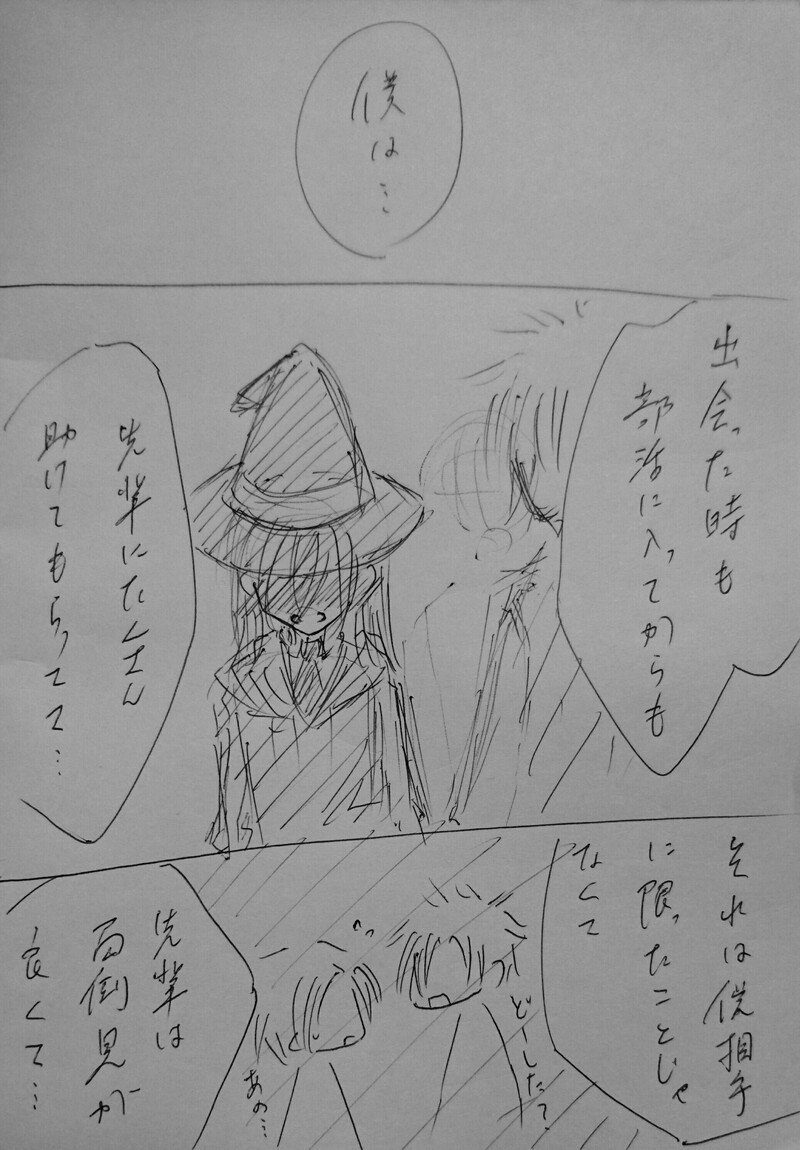 僕は…
出会った時も
部活に入ってからも
先輩にたくさん
助けてもらってて…
それは僕相手
に限ったことじゃ
なくて
どーした?
あの…
先輩は
面倒見が
良くて…